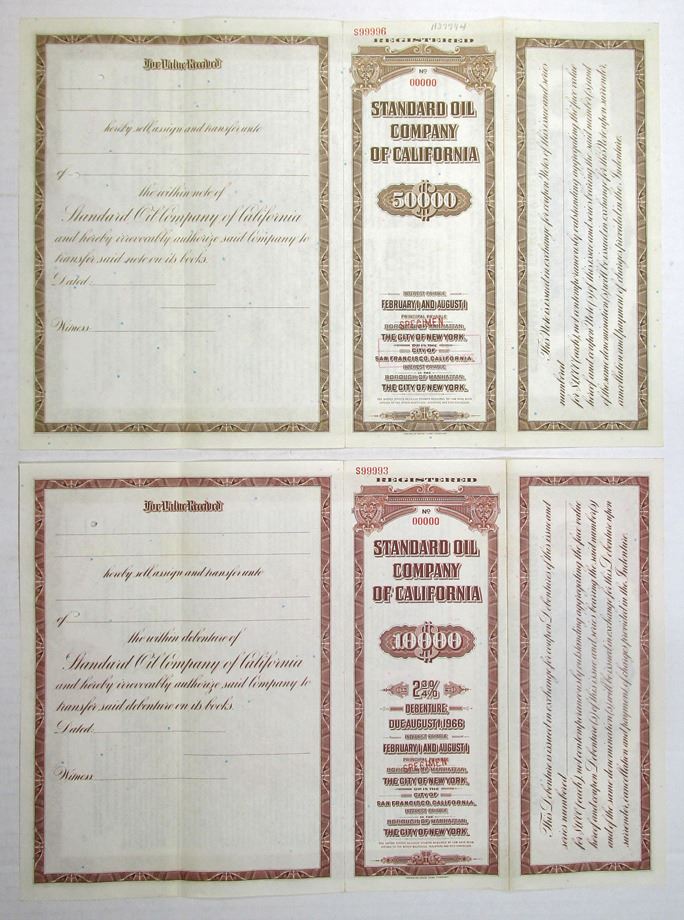 For Value Received
hereby sell, assign and transfer unto
of
the within note of
Standard Oil Company of California
and hereby irrevocably authorize said Company to
transfer said note on its books.
Dated:
Witness:
S99996
REGISTERED
No
00000
STANDARD OIL
COMPANY
OF CALIFORNIA
50000
INTEREST PAYABLE
FEBRUARY 1 AND AUGUST 1
PRINCIPAL PAYABLE
SPECIMEN
BOROUGH OF MANHATTAN,
THE CITY OF NEW YORK,
OR IN THE
CITY OF
SAN FRANCISCO, CALIFORNIA.
INTEREST PAYABLE
IN THE
BOROUGH OF MANHATTAN,
THE CITY OF NEW YORK.
This Note is issued in exchange for coupon Notes of this issue and series
numbered
for $1,000 (each), not contemporaneously outstanding, aggregating the face value
hereof, and coupon Note(s) of this issue and series bearing the said number(s) and
of the same denomination(s) will be issued in exchange for this Note upon surrender,
cancellation and payment of charges provided in the Indenture.
For Value Received
hereby sell, assign and transfer unto
of
the within debenture of
Standard Oil Company of California
and hereby irrevocably authorize said Company to
transfer said debenture on its books.
Dated:
Witness:
S99993
REGISTERED
No
00000
STANDARD OIL
COMPANY
OF CALIFORNIA
10000
2¾%
DEBENTURE,
DUE AUGUST 1, 1966
INTEREST PAYABLE
FEBRUARY 1 AND AUGUST 1
PRINCIPAL PAYABLE
SPECIMEN
BOROUGH OF MANHATTAN,
THE CITY OF NEW YORK,
OR IN THE
CITY OF
SAN FRANCISCO, CALIFORNIA.
INTEREST PAYABLE
IN THE
BOROUGH OF MANHATTAN,
THE CITY OF NEW YORK.
This Debenture is issued in exchange for coupon Debentures of this issue and
series numbered
for $1,000 (each), not contemporaneously outstanding, aggregating the face value
hereof, and coupon Debenture(s) of this issue and series bearing the said number(s)
and of the same denomination(s) will be issued in exchange for this Debenture upon
surrender, cancellation and payment of charges provided in the Indenture.